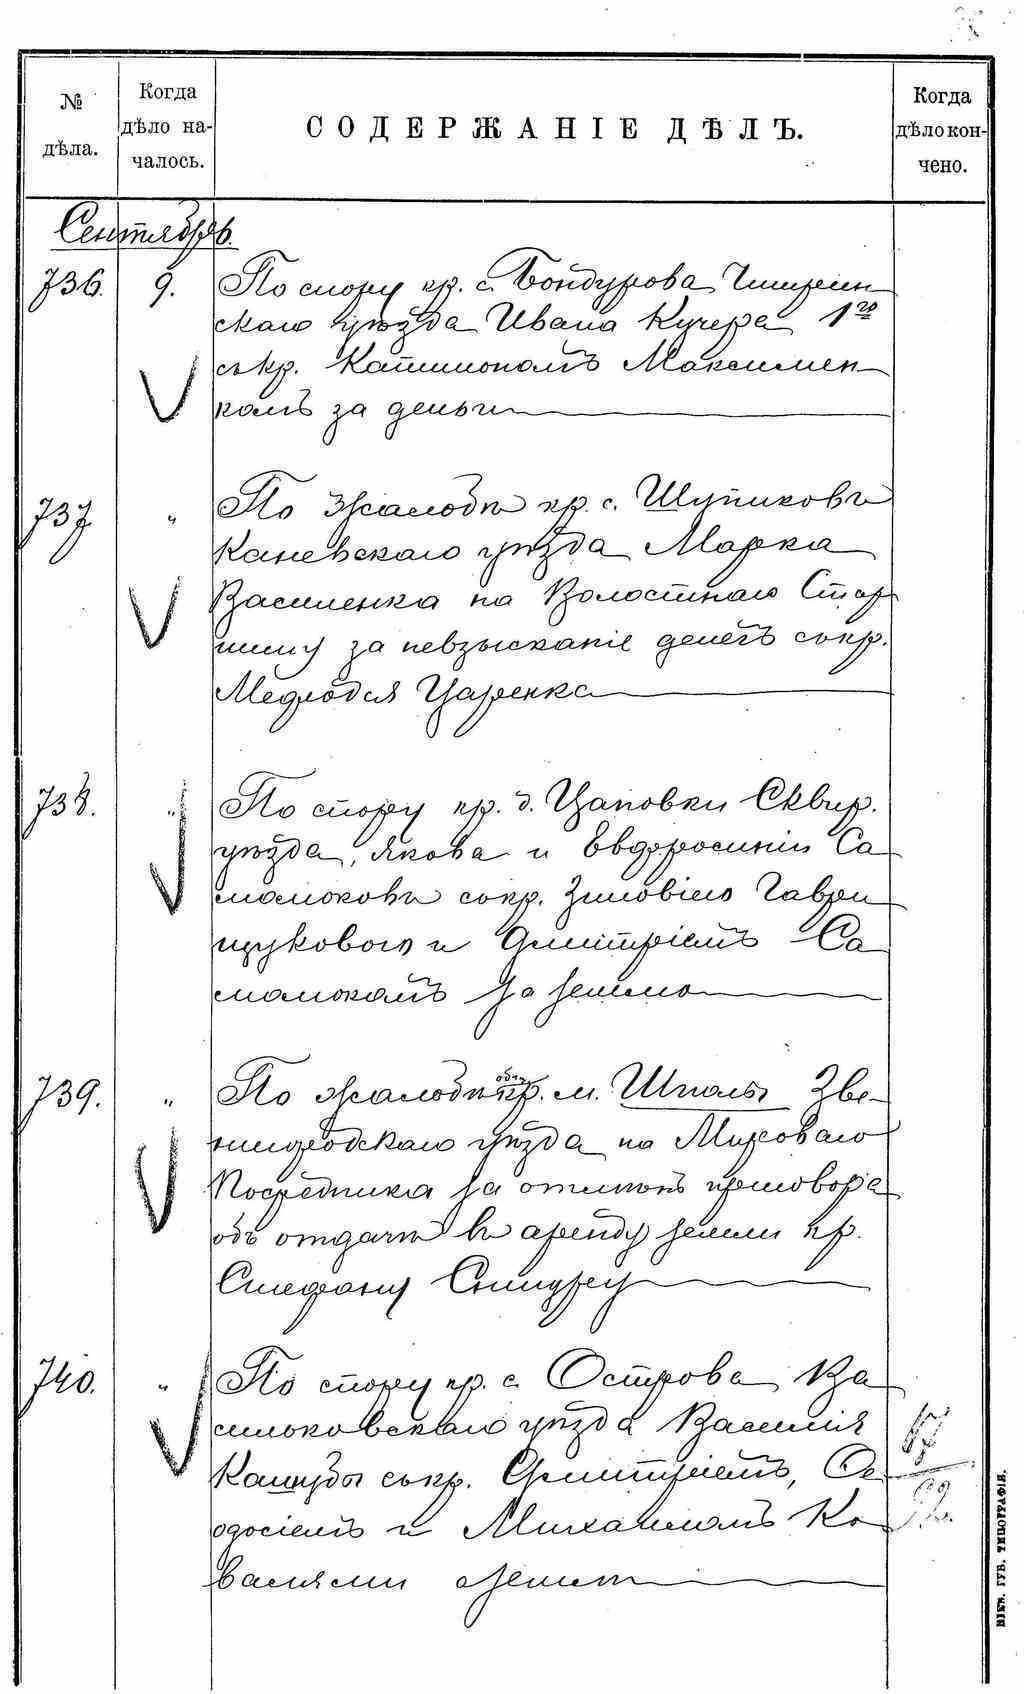 № дѣла.
Когда дѣло началось.
СОДЕРЖАНІЕ ДѢЛЪ.
Когда дѣло кончено.
Сентябрь.
736. 9. По спору кр. с. Бондурова Гиспрен-
скаго уѣзда Ивана Кучера 1го
съ кр. Максимен-
комъ за деньги
737 " По жалобѣ кр. с. Шупиковъ
Каневскаго уѣзда Марка
Василенка на Волостнаго Стар-
шину за невзысканіе денегъ съ кр.
Мефодія Царенка
738. " По спору кр. д. Цаповки Сквир.
уѣзда, Якова и Евфросиніи Са-
моиоковъ съ кр. Зиновіею Гаври-
щуковою и Дмитріемъ Са-
за землю
739. " По жалобѣ общ. кр. м. Шполы Зве-
нигородскаго уѣзда на Мироваго
Посредника за отмѣну приговора
объ отдачѣ въ аренду земли кр.
Стефану Сницеру
740. " По спору кр. с. Острова Ва-
сильковскаго уѣзда Василія
Кашубы съ кр. Дмитріемъ, Ѳе-
одосіемъ и Михаиломъ Ко-
валями о землѣ
17
92.
КІЕВ. ГУБ. ТИПОГРАФІЯ.